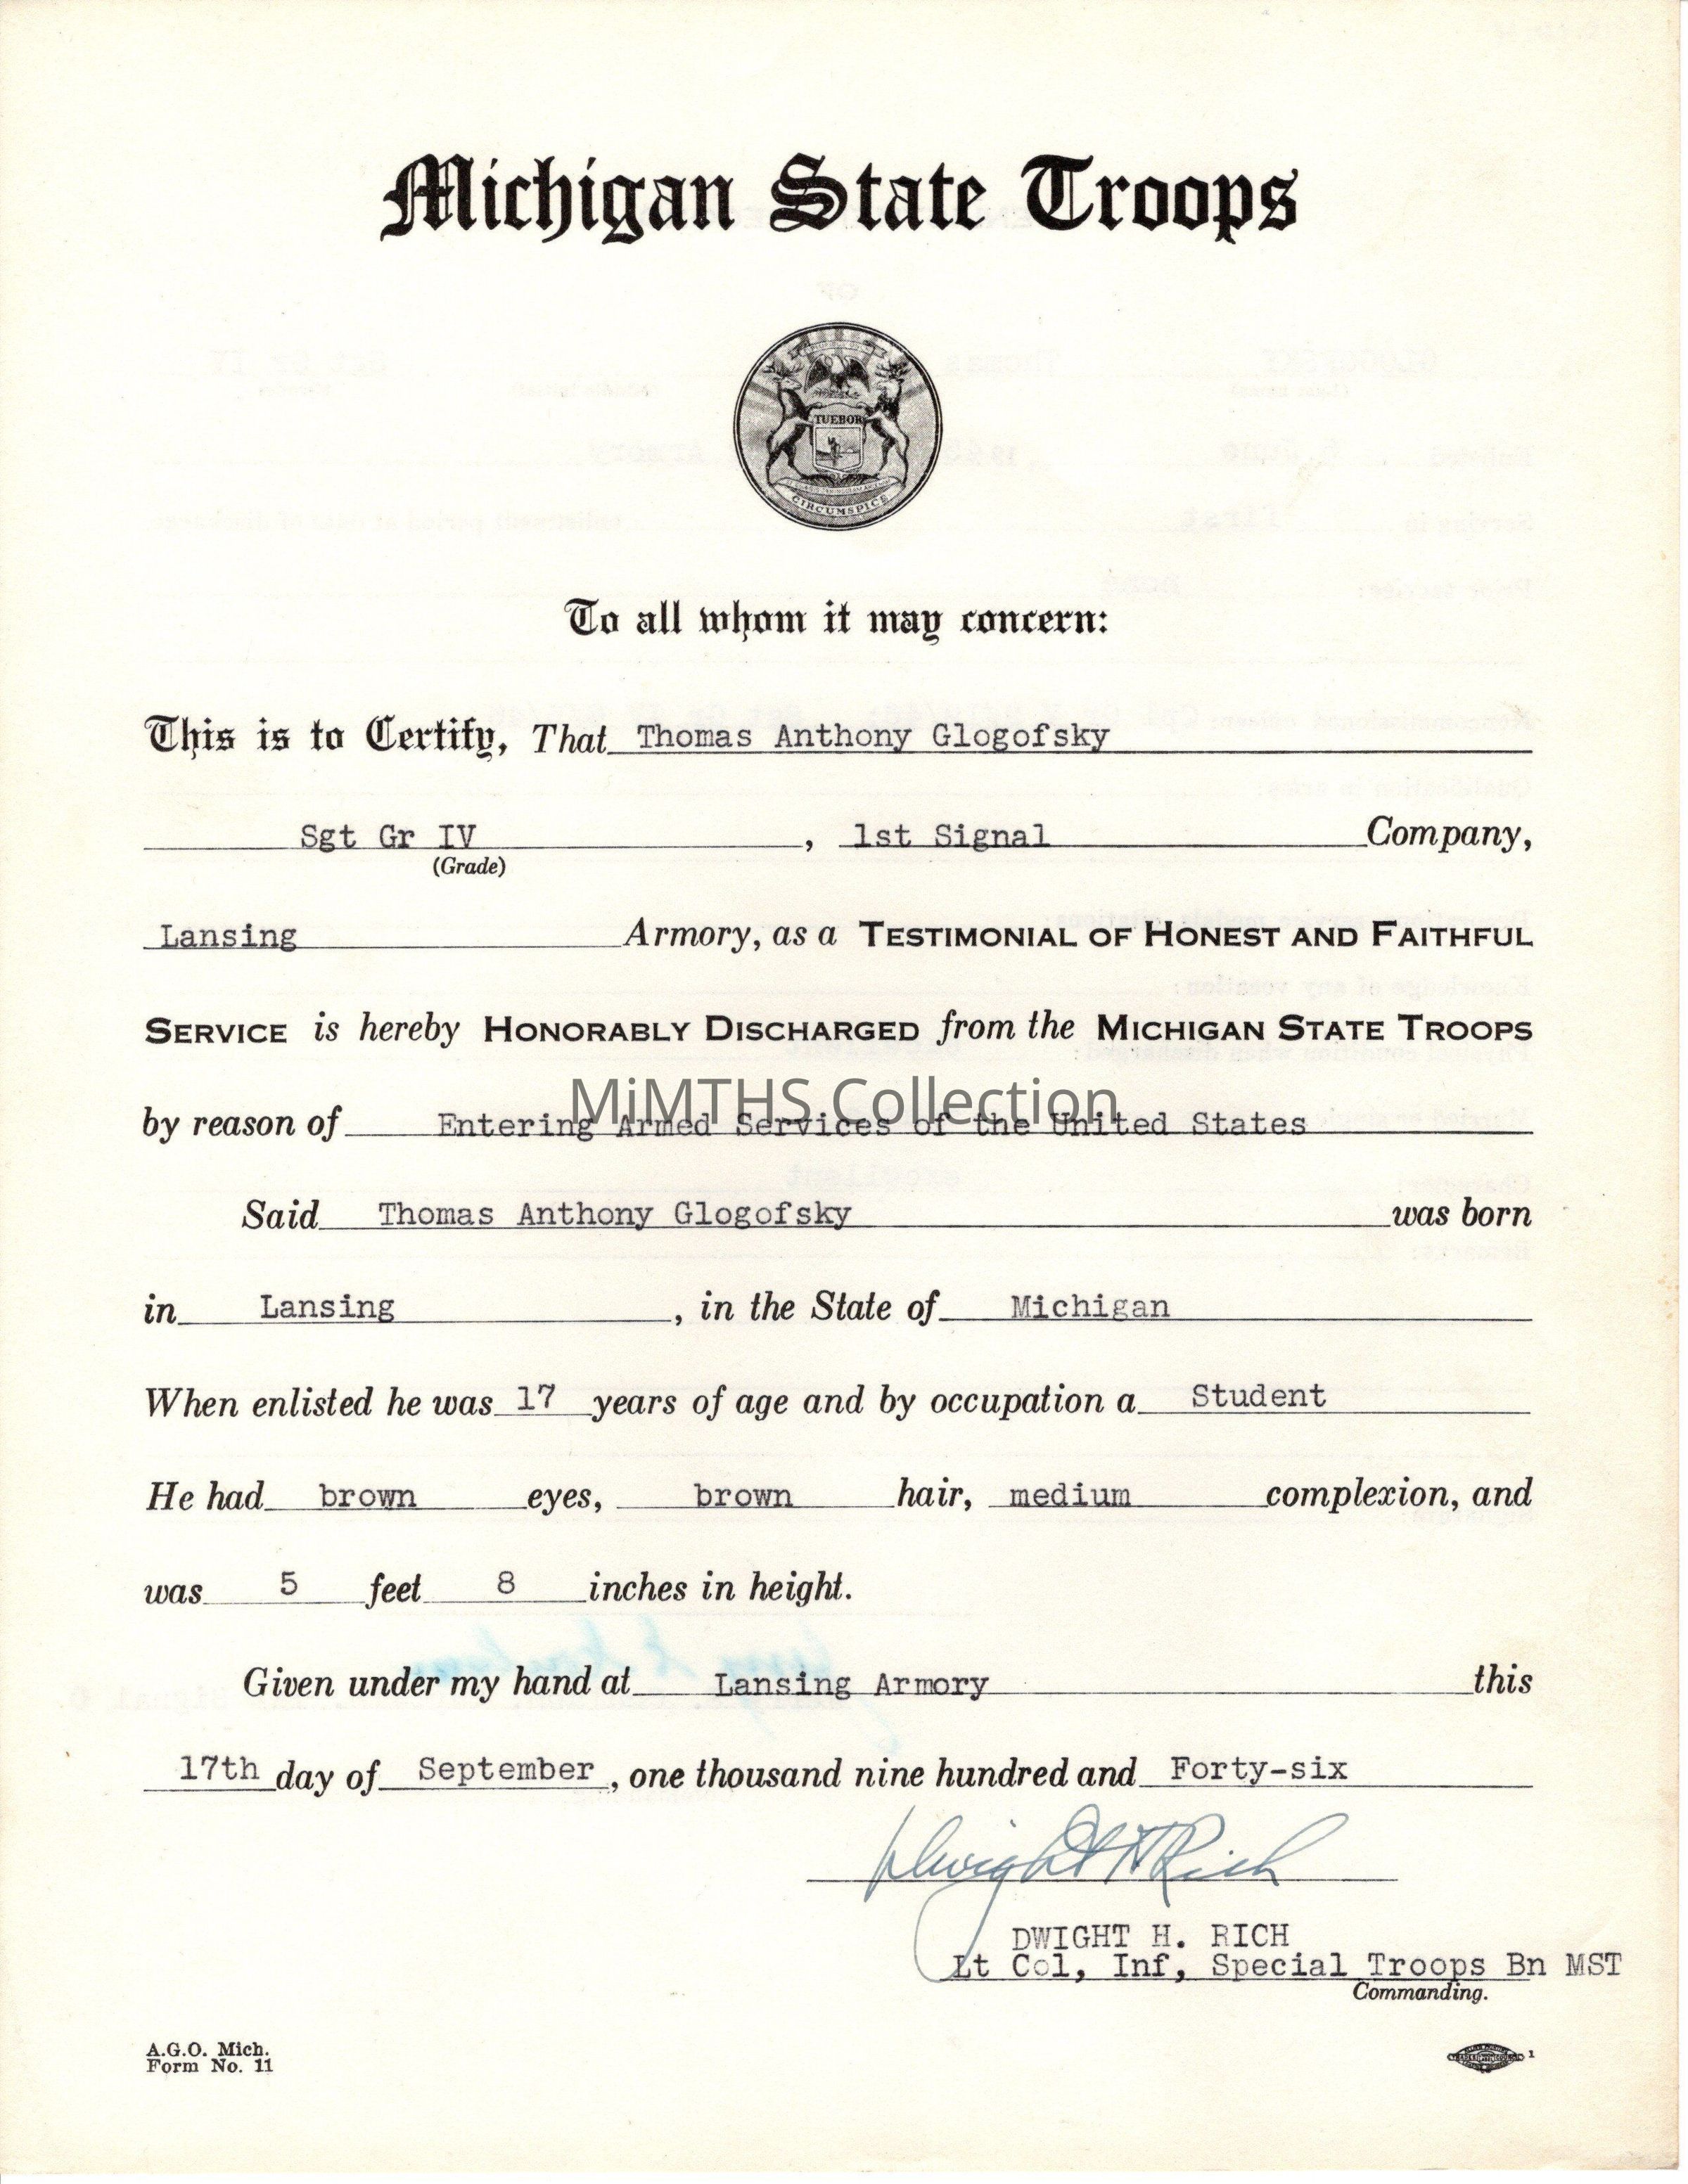 Michigan State Troops
TUEBOR
CIRCUMSPICE
To all whom it may concern:
This is to Certify, That Thomas Anthony Glogofsky
Sgt Gr IV , 1st Signal Company,
(Grade)
Lansing Armory, as a TESTIMONIAL OF HONEST AND FAITHFUL
SERVICE is hereby HONORABLY DISCHARGED from the MICHIGAN STATE TROOPS
MiMTHS Collection
by reason of Entering Armed Services of the United States
Said Thomas Anthony Glogofsky was born
in Lansing , in the State of Michigan
When enlisted he was 17 years of age and by occupation a Student
He had brown eyes, brown hair, medium complexion, and
was 5 feet 8 inches in height.
Given under my hand at Lansing Armory this
17th day of September , one thousand nine hundred and Forty-six
Dwight H Rich
DWIGHT H. RICH
Lt Col, Inf, Special Troops Bn MST
Commanding.
A.G.O. Mich.
Form No. 11
1